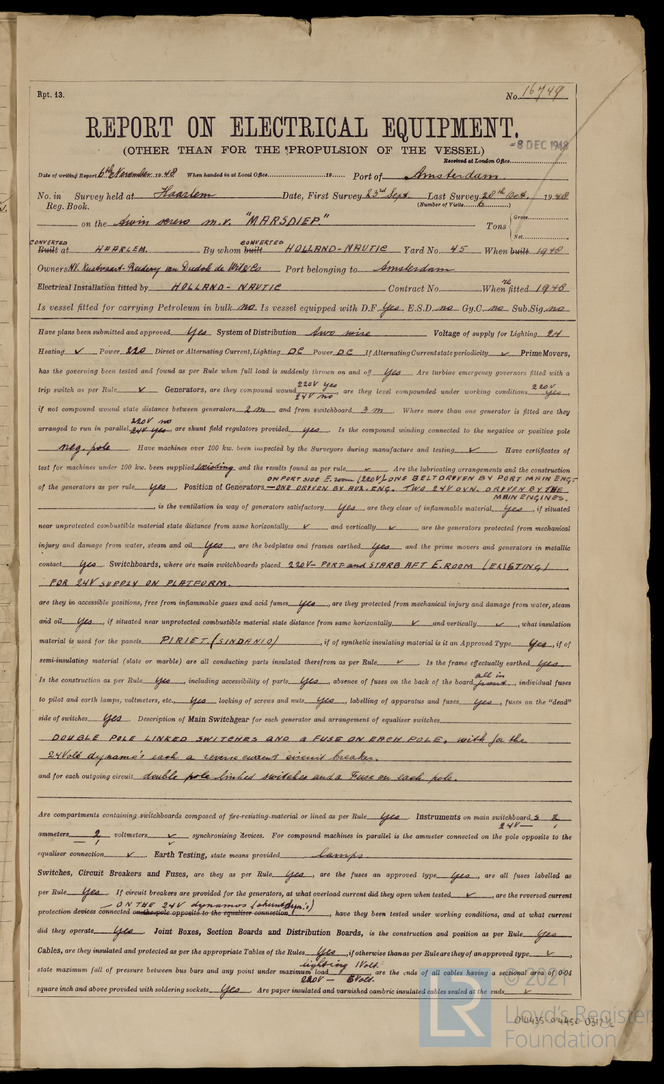 Rpt. 13.
No. 16749
REPORT ON ELECTRICAL EQUIPMENT.
(OTHER THAN FOR THE PROPULSION OF THE VESSEL)
-8 DEC 1948
Received at London Office
Date of writing Report 6th November 1948 When handed in at Local Office 19 Port of Amsterdam.
No. in Survey held at Haarlem Date, First Survey 23rd Sept. Last Survey 28th Oct. 1948
Reg. Book. (Number of Visits 6)
on the twin screw m.v. "MARSDIEP." Tons Gross Net
CONVERTED CONVERTED
Built at HAARLEM. By whom built HOLLAND-NAUTIC Yard No. 45 When built 1948
Owners NV. Kustvaart-Rederij Port belonging to Amsterdam
Electrical Installation fitted by HOLLAND-NAUTIC Contract No. When re fitted 1948
Is vessel fitted for carrying Petroleum in bulk no Is vessel equipped with D.F. yes E.S.D. no Gy.C. no Sub.Sig. no
Have plans been submitted and approved Yes System of Distribution two wire Voltage of supply for Lighting 24
Heating v Power 220 Direct or Alternating Current, Lighting DC Power DC If Alternating Current state periodicity v Prime Movers,
has the governing been tested and found as per Rule when full load is suddenly thrown on and off Yes Are turbine emergency governors fitted with a
trip switch as per Rule v Generators, are they compound wound 220V yes 24V no are they level compounded under working conditions 220V yes,
if not compound wound state distance between generators 2 m and from switchboard 3 m Where more than one generator is fitted are they
arranged to run in parallel 220V no 24V yes are shunt field regulators provided yes Is the compound winding connected to the negative or positive pole
neg. pole Have machines over 100 kw. been inspected by the Surveyors during manufacture and testing v Have certificates of
test for machines under 100 kw. been supplied existing and the results found as per rule v Are the lubricating arrangements and the construction
ON PORT SIDE E.room (220V) ONE BELTDRIVEN BY PORT MAIN ENG-
of the generators as per rule yes Position of Generators -ONE DRIVEN BY AUX. ENG. TWO 24V DYN. DRIVEN BY THE
MAIN ENGINES.
, is the ventilation in way of generators satisfactory Yes, are they clear of inflammable material yes, if situated
near unprotected combustible material state distance from same horizontally v and vertically v are the generators protected from mechanical
injury and damage from water, steam and oil yes, are the bedplates and frames earthed yes and the prime movers and generators in metallic
contact Yes Switchboards, where are main switchboards placed 220V- PORT and STARB AFT E.ROOM (EXISTING)
FOR 24V SUPPLY ON PLATFORM.
are they in accessible positions, free from inflammable gases and acid fumes yes, are they protected from mechanical injury and damage from water, steam
and oil yes, if situated near unprotected combustible material state distance from same horizontally v and vertically v, what insulation
material is used for the panels PIRIET. (SINDANIO), if of synthetic insulating material is it an Approved Type Yes, if of
semi-insulating material (slate or marble) are all conducting parts insulated therefrom as per Rule v Is the frame effectually earthed yes
Is the construction as per Rule Yes, including accessibility of parts yes, absence of fuses on the back of the board all in front, individual fuses
to pilot and earth lamps, voltmeters, etc. yes locking of screws and nuts yes, labelling of apparatus and fuses yes, fuses on the "dead"
side of switches Yes Description of Main Switchgear for each generator and arrangement of equaliser switches
DOUBLE POLE LINKED SWITCHES AND A FUSE ON EACH POLE, with for the
24Volt dynamo's each a reverse current circuit breaker.
and for each outgoing circuit double pole linked switches and a Fuse on each pole.
Are compartments containing switchboards composed of fire-resisting material or lined as per Rule Yes Instruments on main switchboard 3 2
24V- 1
ammeters 2 voltmeters v synchronizing devices. For compound machines in parallel is the ammeter connected on the pole opposite to the
equaliser connection v Earth Testing, state means provided lamps.
Switches, Circuit Breakers and Fuses, are they as per Rule yes, are the fuses an approved type yes, are all fuses labelled as
per Rule Yes If circuit breakers are provided for the generators, at what overload current did they open when tested v, are the reversed current
ON THE 24V dynamos (shuntdyn's)
protection devices connected on the pole opposite to the equaliser connection, have they been tested under working conditions, and at what current
did they operate Yes Joint Boxes, Section Boards and Distribution Boards, is the construction and position as per Rule Yes
Cables, are they insulated and protected as per the appropriate Tables of the Rules Yes, if otherwise than as per Rule are they of an approved type v,
state maximum fall of pressure between bus bars and any point under maximum load lighting 1Volt, are the ends of all cables having a sectional area of 0·04
220V - 6Volt.
square inch and above provided with soldering sockets Yes Are paper insulated and varnished cambric insulated cables sealed at the ends v
LR
© 2021
Lloyd's Register
Foundation